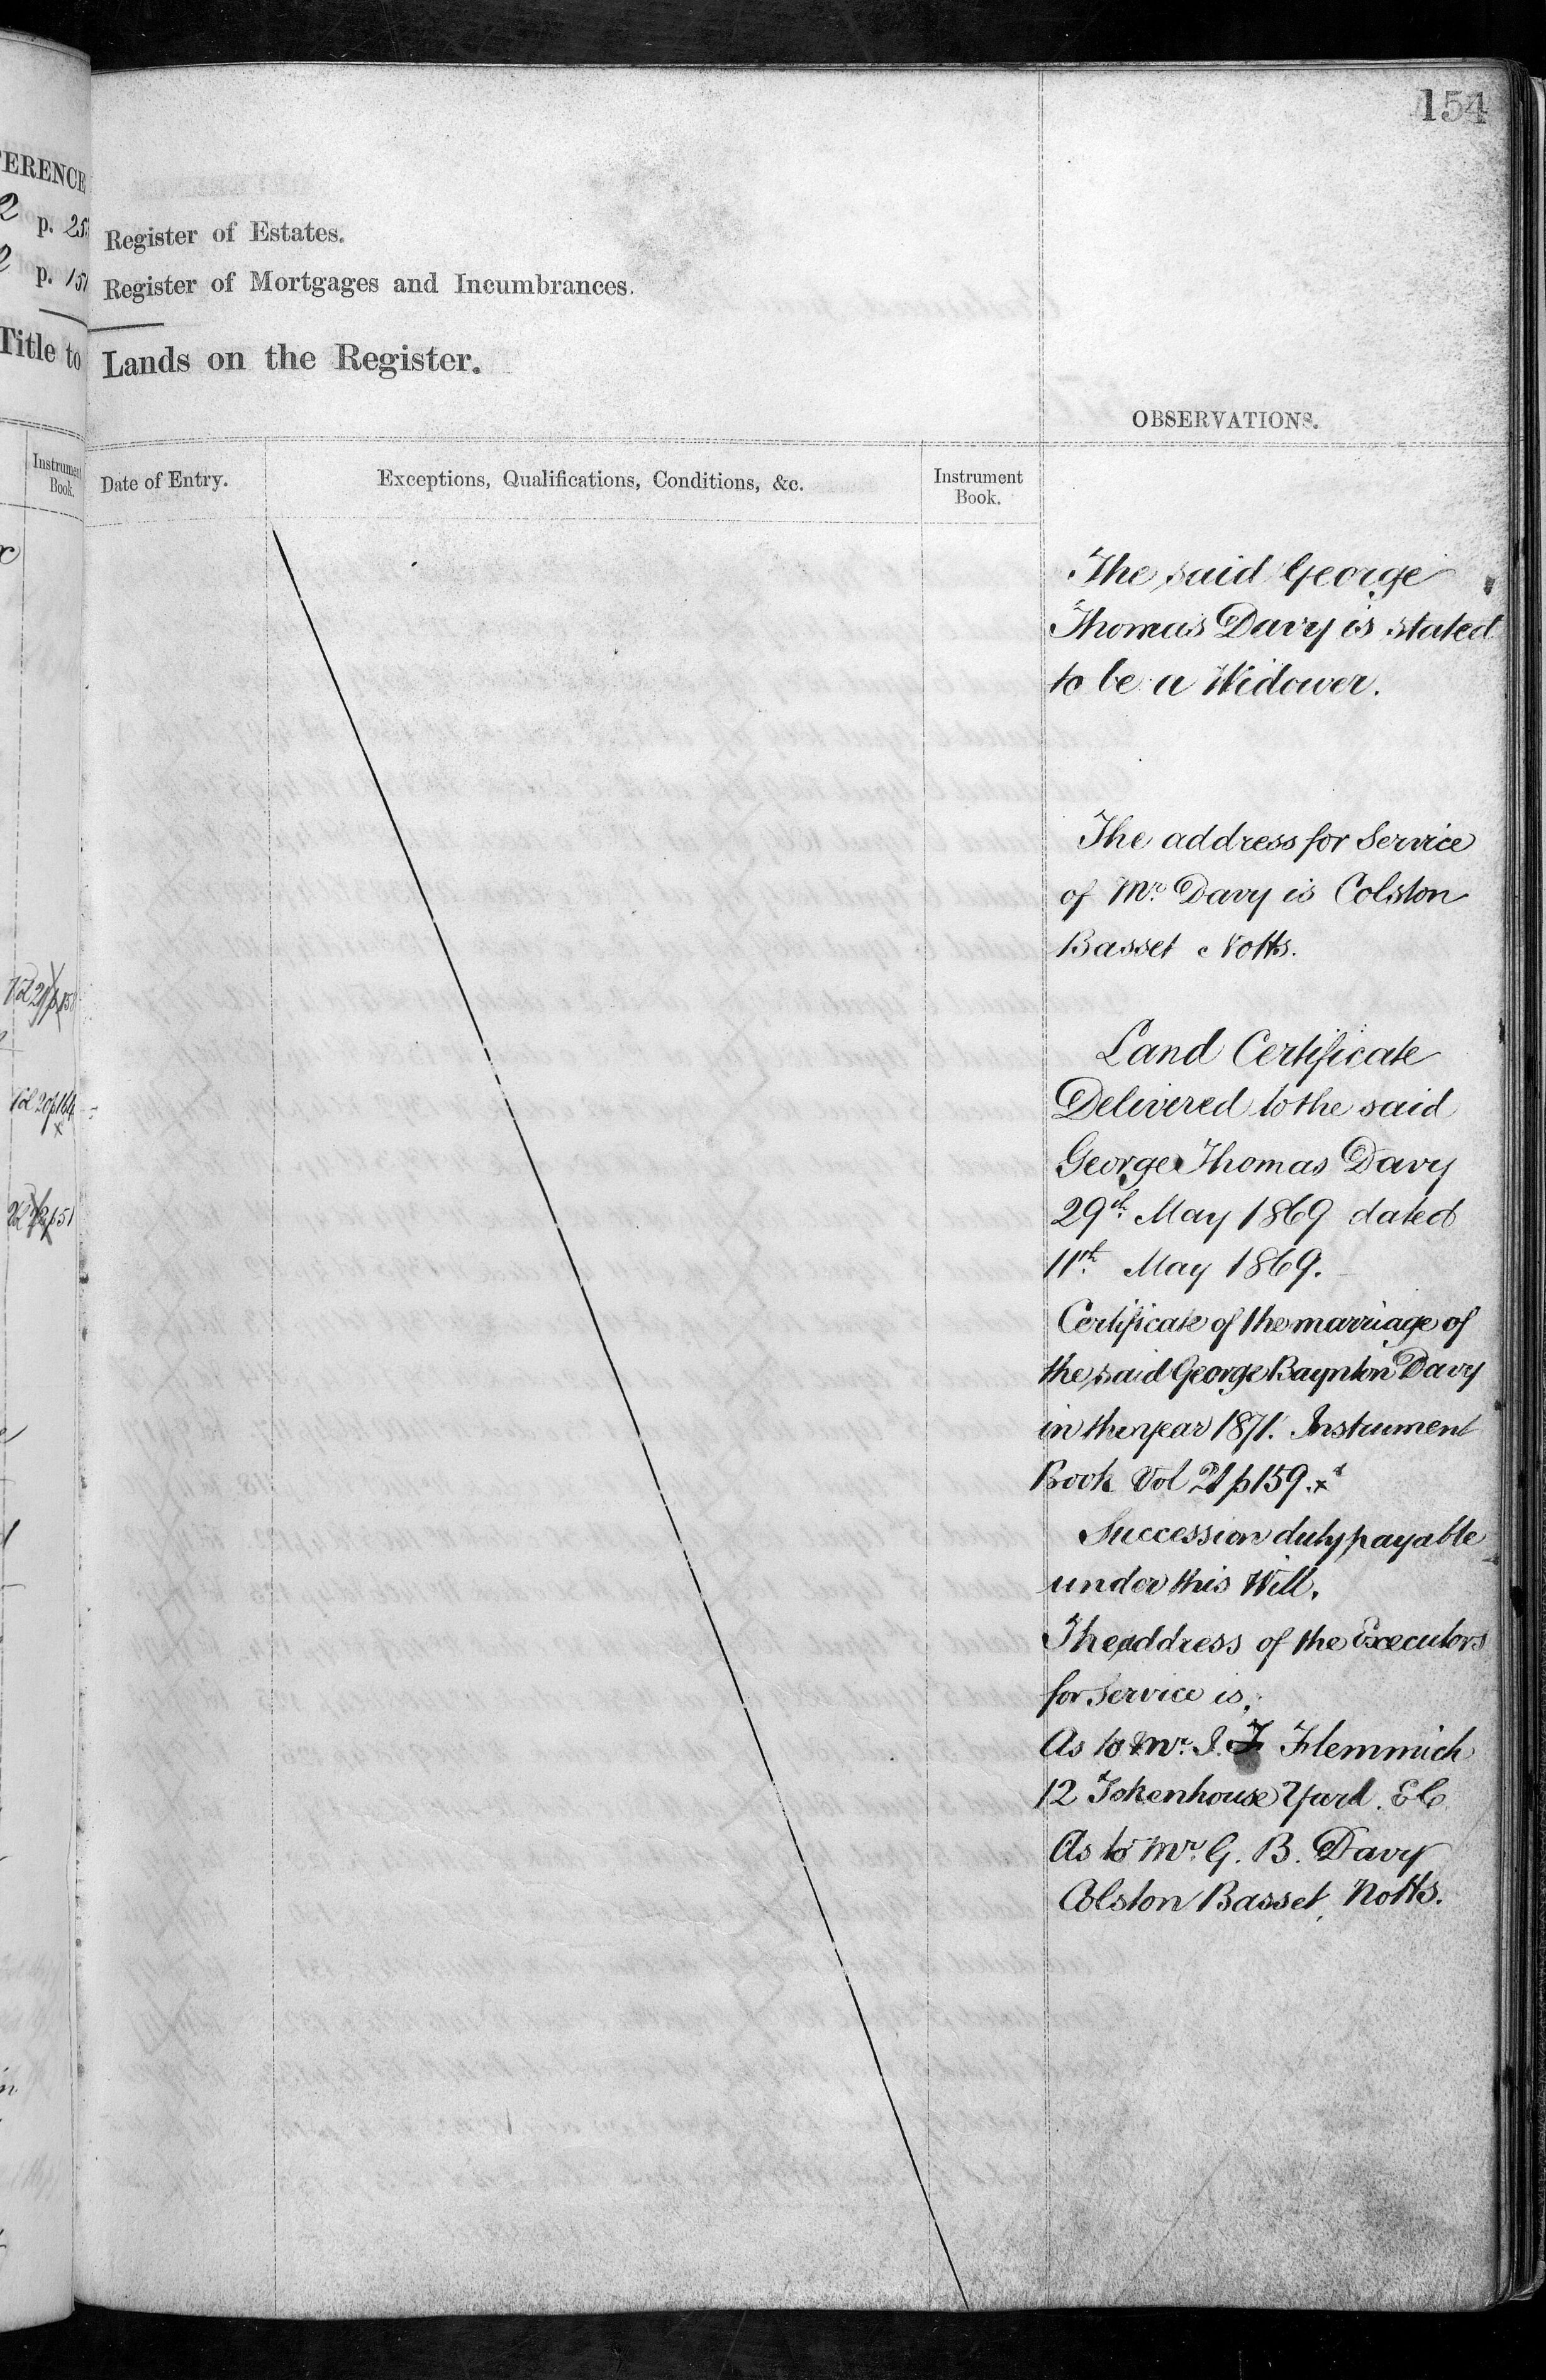 154
FERENCE
p. 25
p. 151
Title to
Instrument
Book.
Vol 20 p 164
Register of Estates.
Register of Mortgages and Incumbrances.
Lands on the Register.
OBSERVATIONS.
Date of Entry.
Exceptions, Qualifications, Conditions, &c.
Instrument
Book.
The said George
Thomas Davy is stated
to be a Widower.
The address for Service
of Mr. Davy is Colston
Basset Notts.
Land Certificate
Delivered to the said
George Thomas Davy
29th May 1869 dated
11th May 1869.
Certificate of the marriage of
the said George Baynton Davy
in the year 1871. Instrument
Book Vol 21 p 159. x
Succession duty payable
under this Will.
The address of the Executors
for Service is,
As to Mr. J. F Flemmich
12 Tokenhouse Yard. EC
As to Mr. G. B. Davy
Colston Basset, Notts.